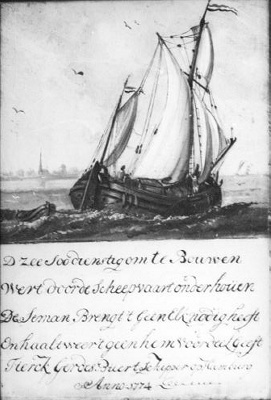 D zee Soo dienstig om te Bouwen
Wert door de Scheepvaart onderhouen
De Seman Brengt 't Geent k nodig heeft
En haalt weert geen hem Voordeel Geeft
Tierck Gerdes Buert Schieper op
Anno 1774